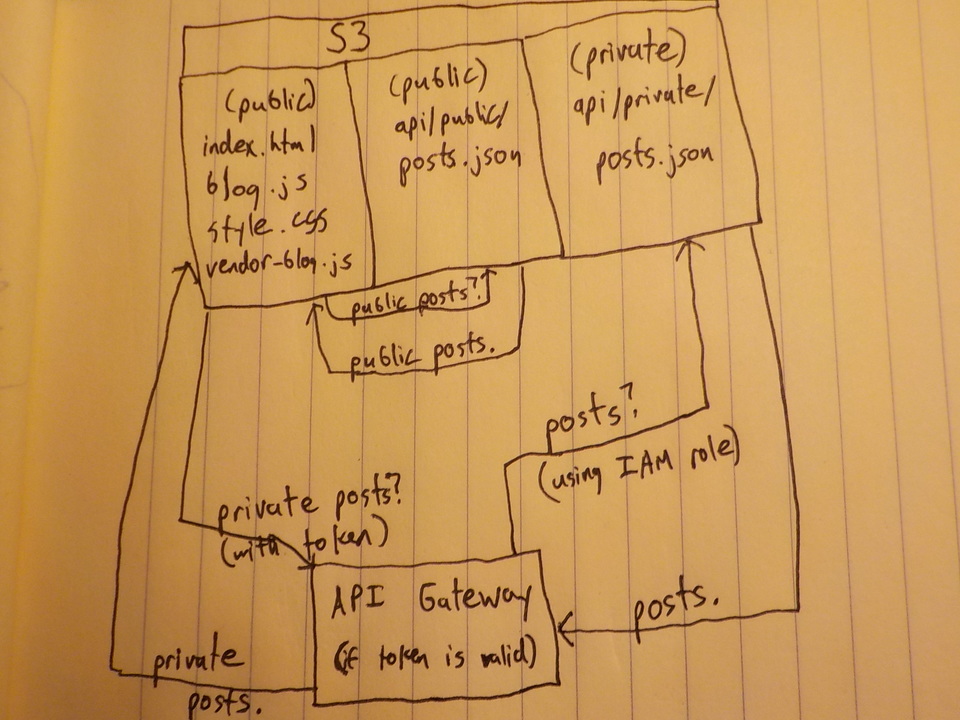 S3
(public)
index.html
blog.js
style.css
vendor-blog.js
(public)
api/public/
posts.json
(private)
api/private/
posts.json
public posts?
public posts.
posts?
(using IAM role)
private posts?
(with token)
API Gateway
(if token is valid)
posts.
private
posts.